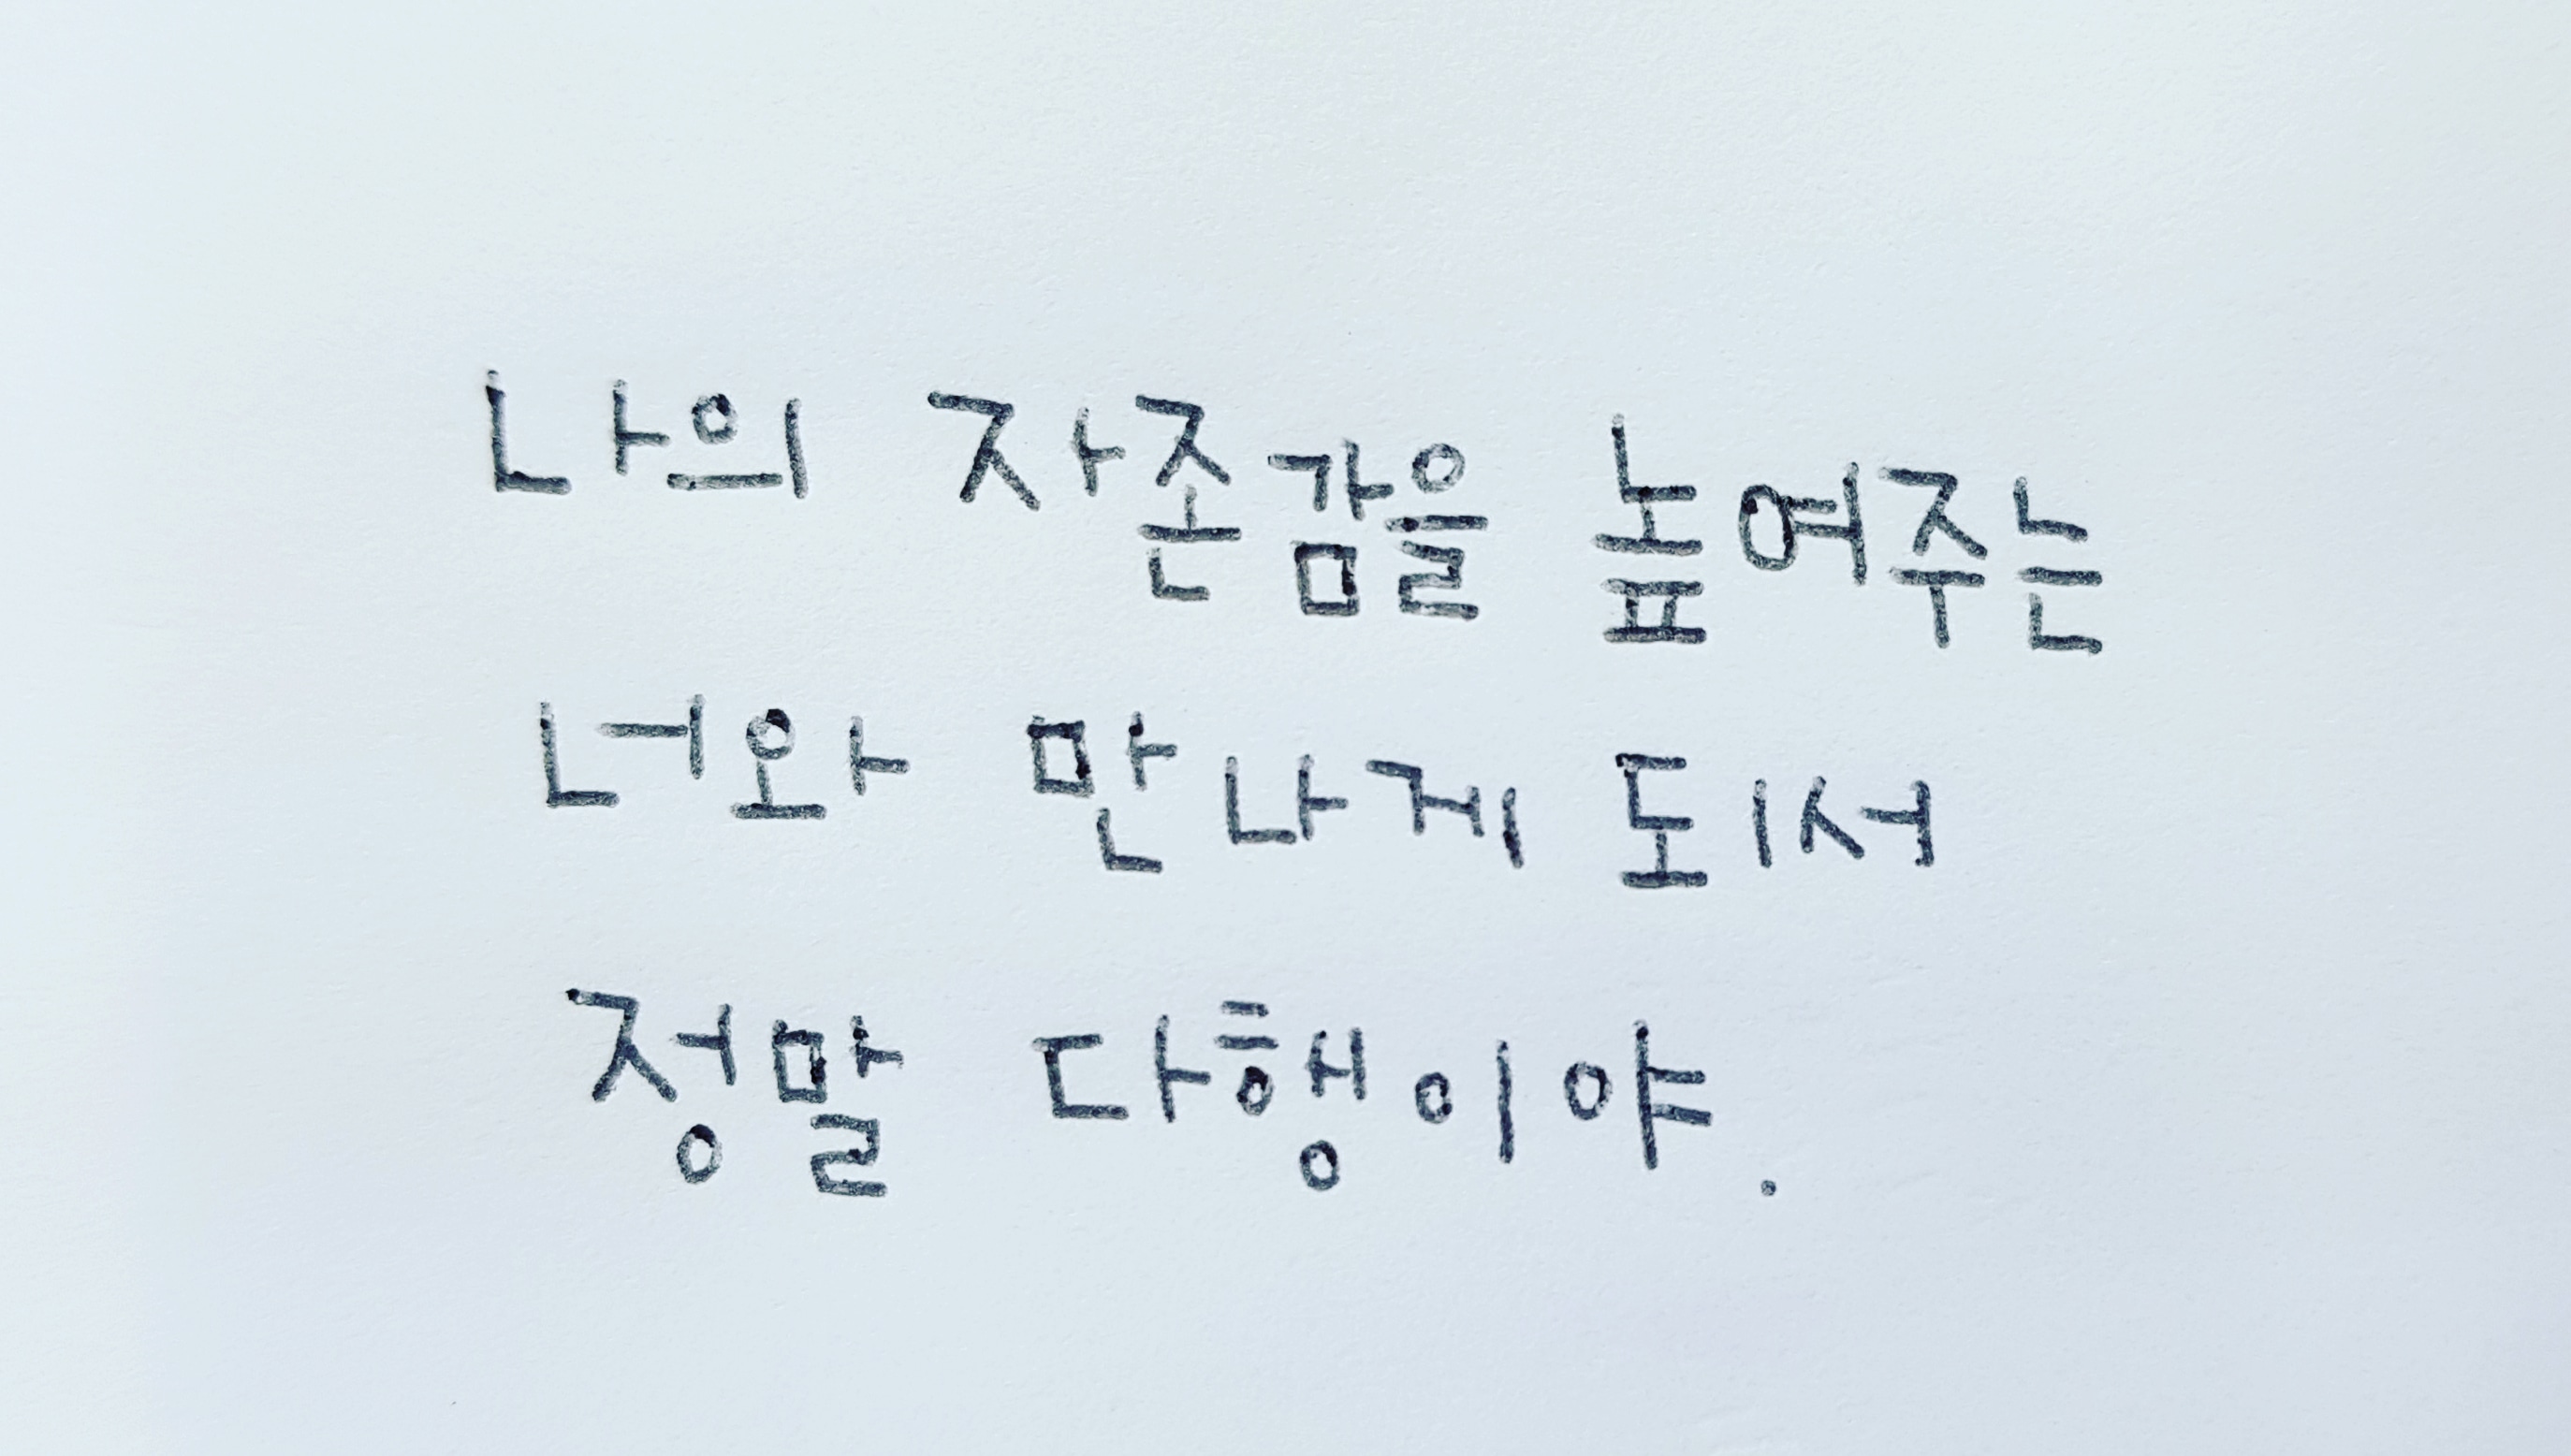 나의 자존감을 높여주는
너와 만나게 되서
정말 다행이야.